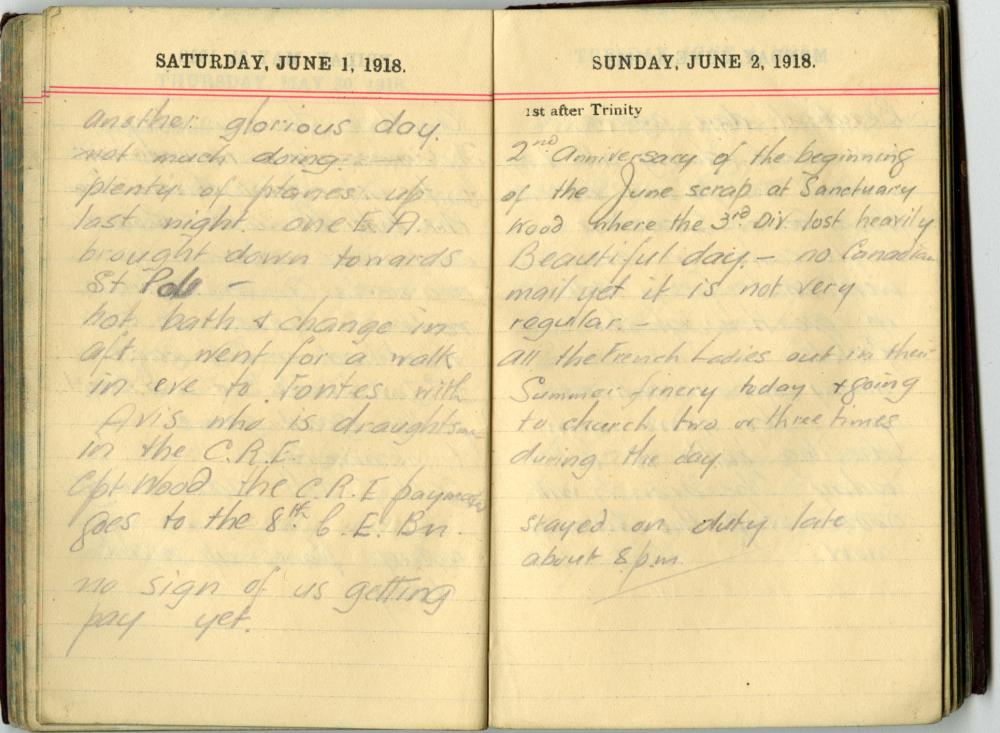 SATURDAY, JUNE 1, 1918.
Another glorious day.
not much doing -
plenty of planes up
last night one E.A.
brought down towards
St Pol -
hot bath & change in
aft. went for a walk
in eve to Fontes with
Avis who is draughtsman
in the C.R.E.
Cpt Wood the C.R.E paymaster
goes to the 8th C.E. Bn.
no sign of us getting
pay yet.
SUNDAY, JUNE 2, 1918.
1st after Trinity
2nd Anniversary of the beginning
of the June scrap at Sanctuary
Wood where the 3rd Div. lost heavily
Beautiful day. - no Canadian
mail yet it is not very
regular. -
All the French Ladies out in their
Summer finery today & going
to church two or three times
during the day
stayed on duty late
about 8 p.m.